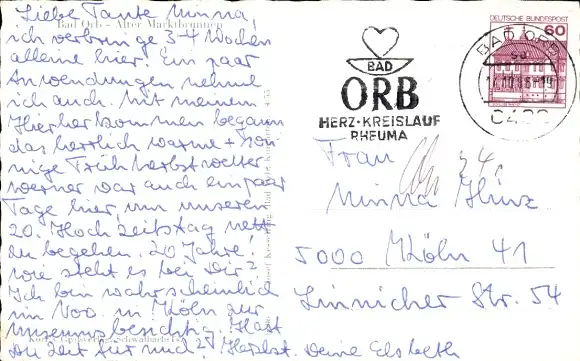 Liebe Tante Minna,
Bad Orb - Alter Marktbrunnen
ich verbringe 3-4 Wochen
alleine hier. Ein paar
Anwendungen nehme
ich auch. Mit meinem
Hierherkommen begann
das herrlich warme + son-
nige Frühherbstwetter
Werner war auch ein paar
Tage hier, um unseren
20. Hochzeitstag nett
zu begehen. 20 Jahre!
Wie steht es bei Dir?
Ich bin wahrscheinlich
im Nov. in Köln zur
Museumsbesichtig. Hast
Du Zeit für mich? Herzlst. Deine Elsbeth
DEUTSCHE BUNDESPOST
60
BAD ORB
BAD
ORB
HERZ·KREISLAUF
RHEUMA
Frau
Minna Hinz
5000 Köln 41
Linnicher Str. 54